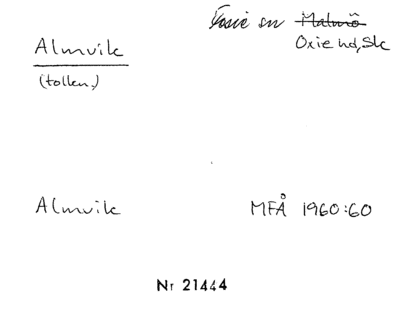 Fosie sn Malmö
Almvik
Oxie hd, Sk
(tollen.)
Almvik
MFÅ 1960:60
Nr 21444